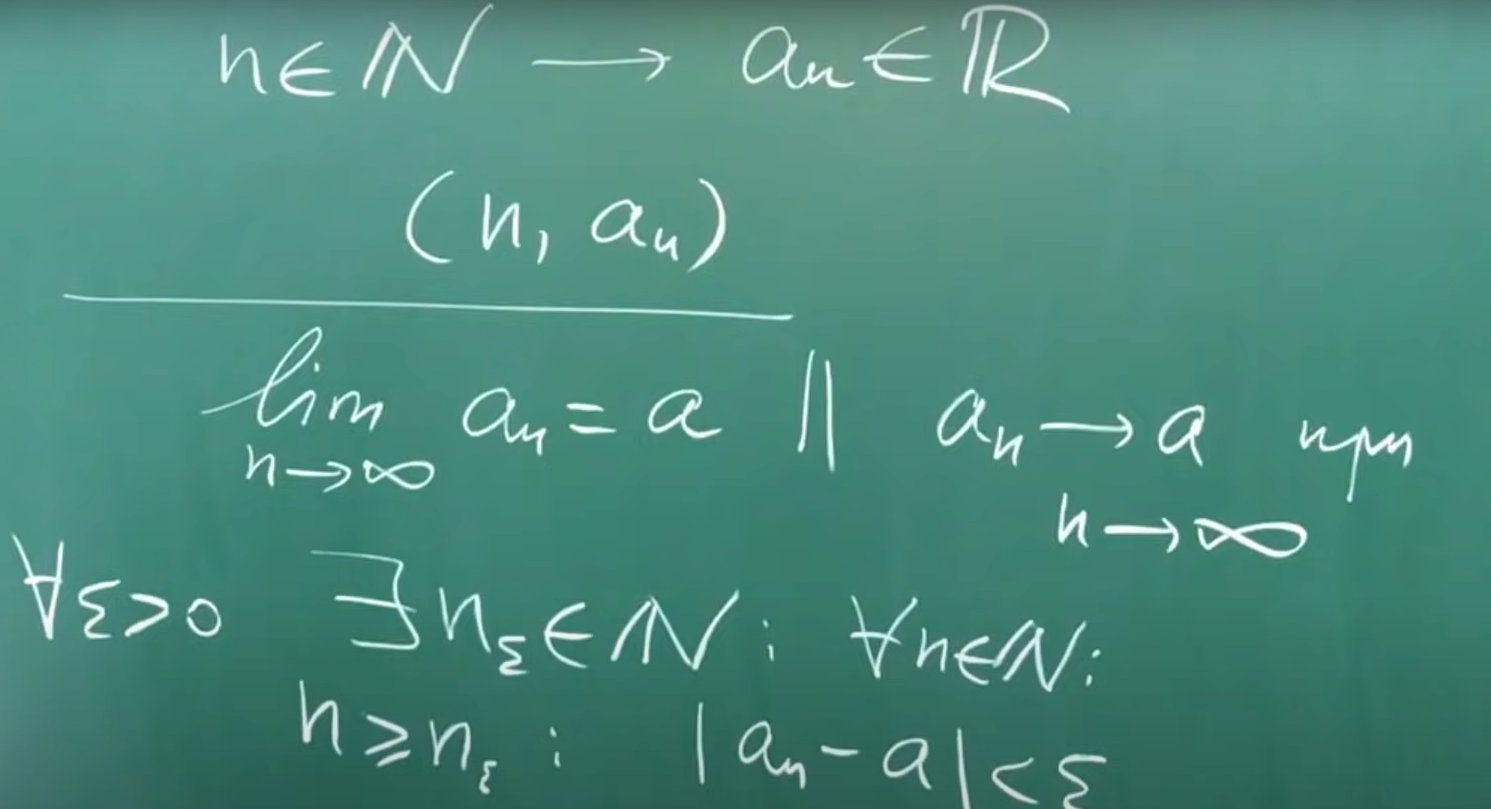 n∈ℕ → aₙ∈ℝ
(n, aₙ)
lim aₙ = a || aₙ → a при
n→∞ n→∞
∀ε>0 ∃n_ε∈ℕ: ∀n∈ℕ:
n⩾n_ε: |aₙ - a|<ε